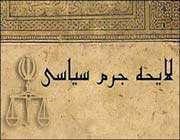 لایحه جرم سیاسی